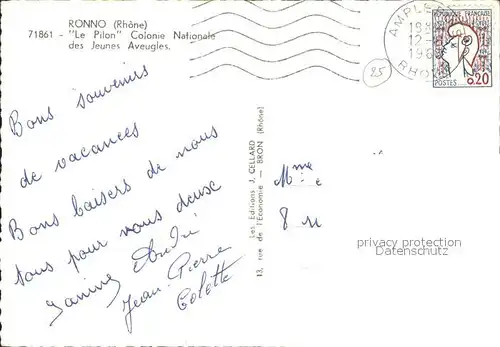 RONNO (Rhône)
71861 - "Le Pilon" Colonie Nationale
des Jeunes Aveugles.
AMPLE
RHO
REPUBLIQUE FRANCAISE
POSTES 0,20
25
Bons souvenirs
de vacances
Bons baisers de nous
tous pour vous deux
Janine André
Jean-Pierre
Colette
Les Editions J. CELLARD
13, rue de l'Economie — BRON (Rhône)
Mme
privacy protection
www.oldthing.com